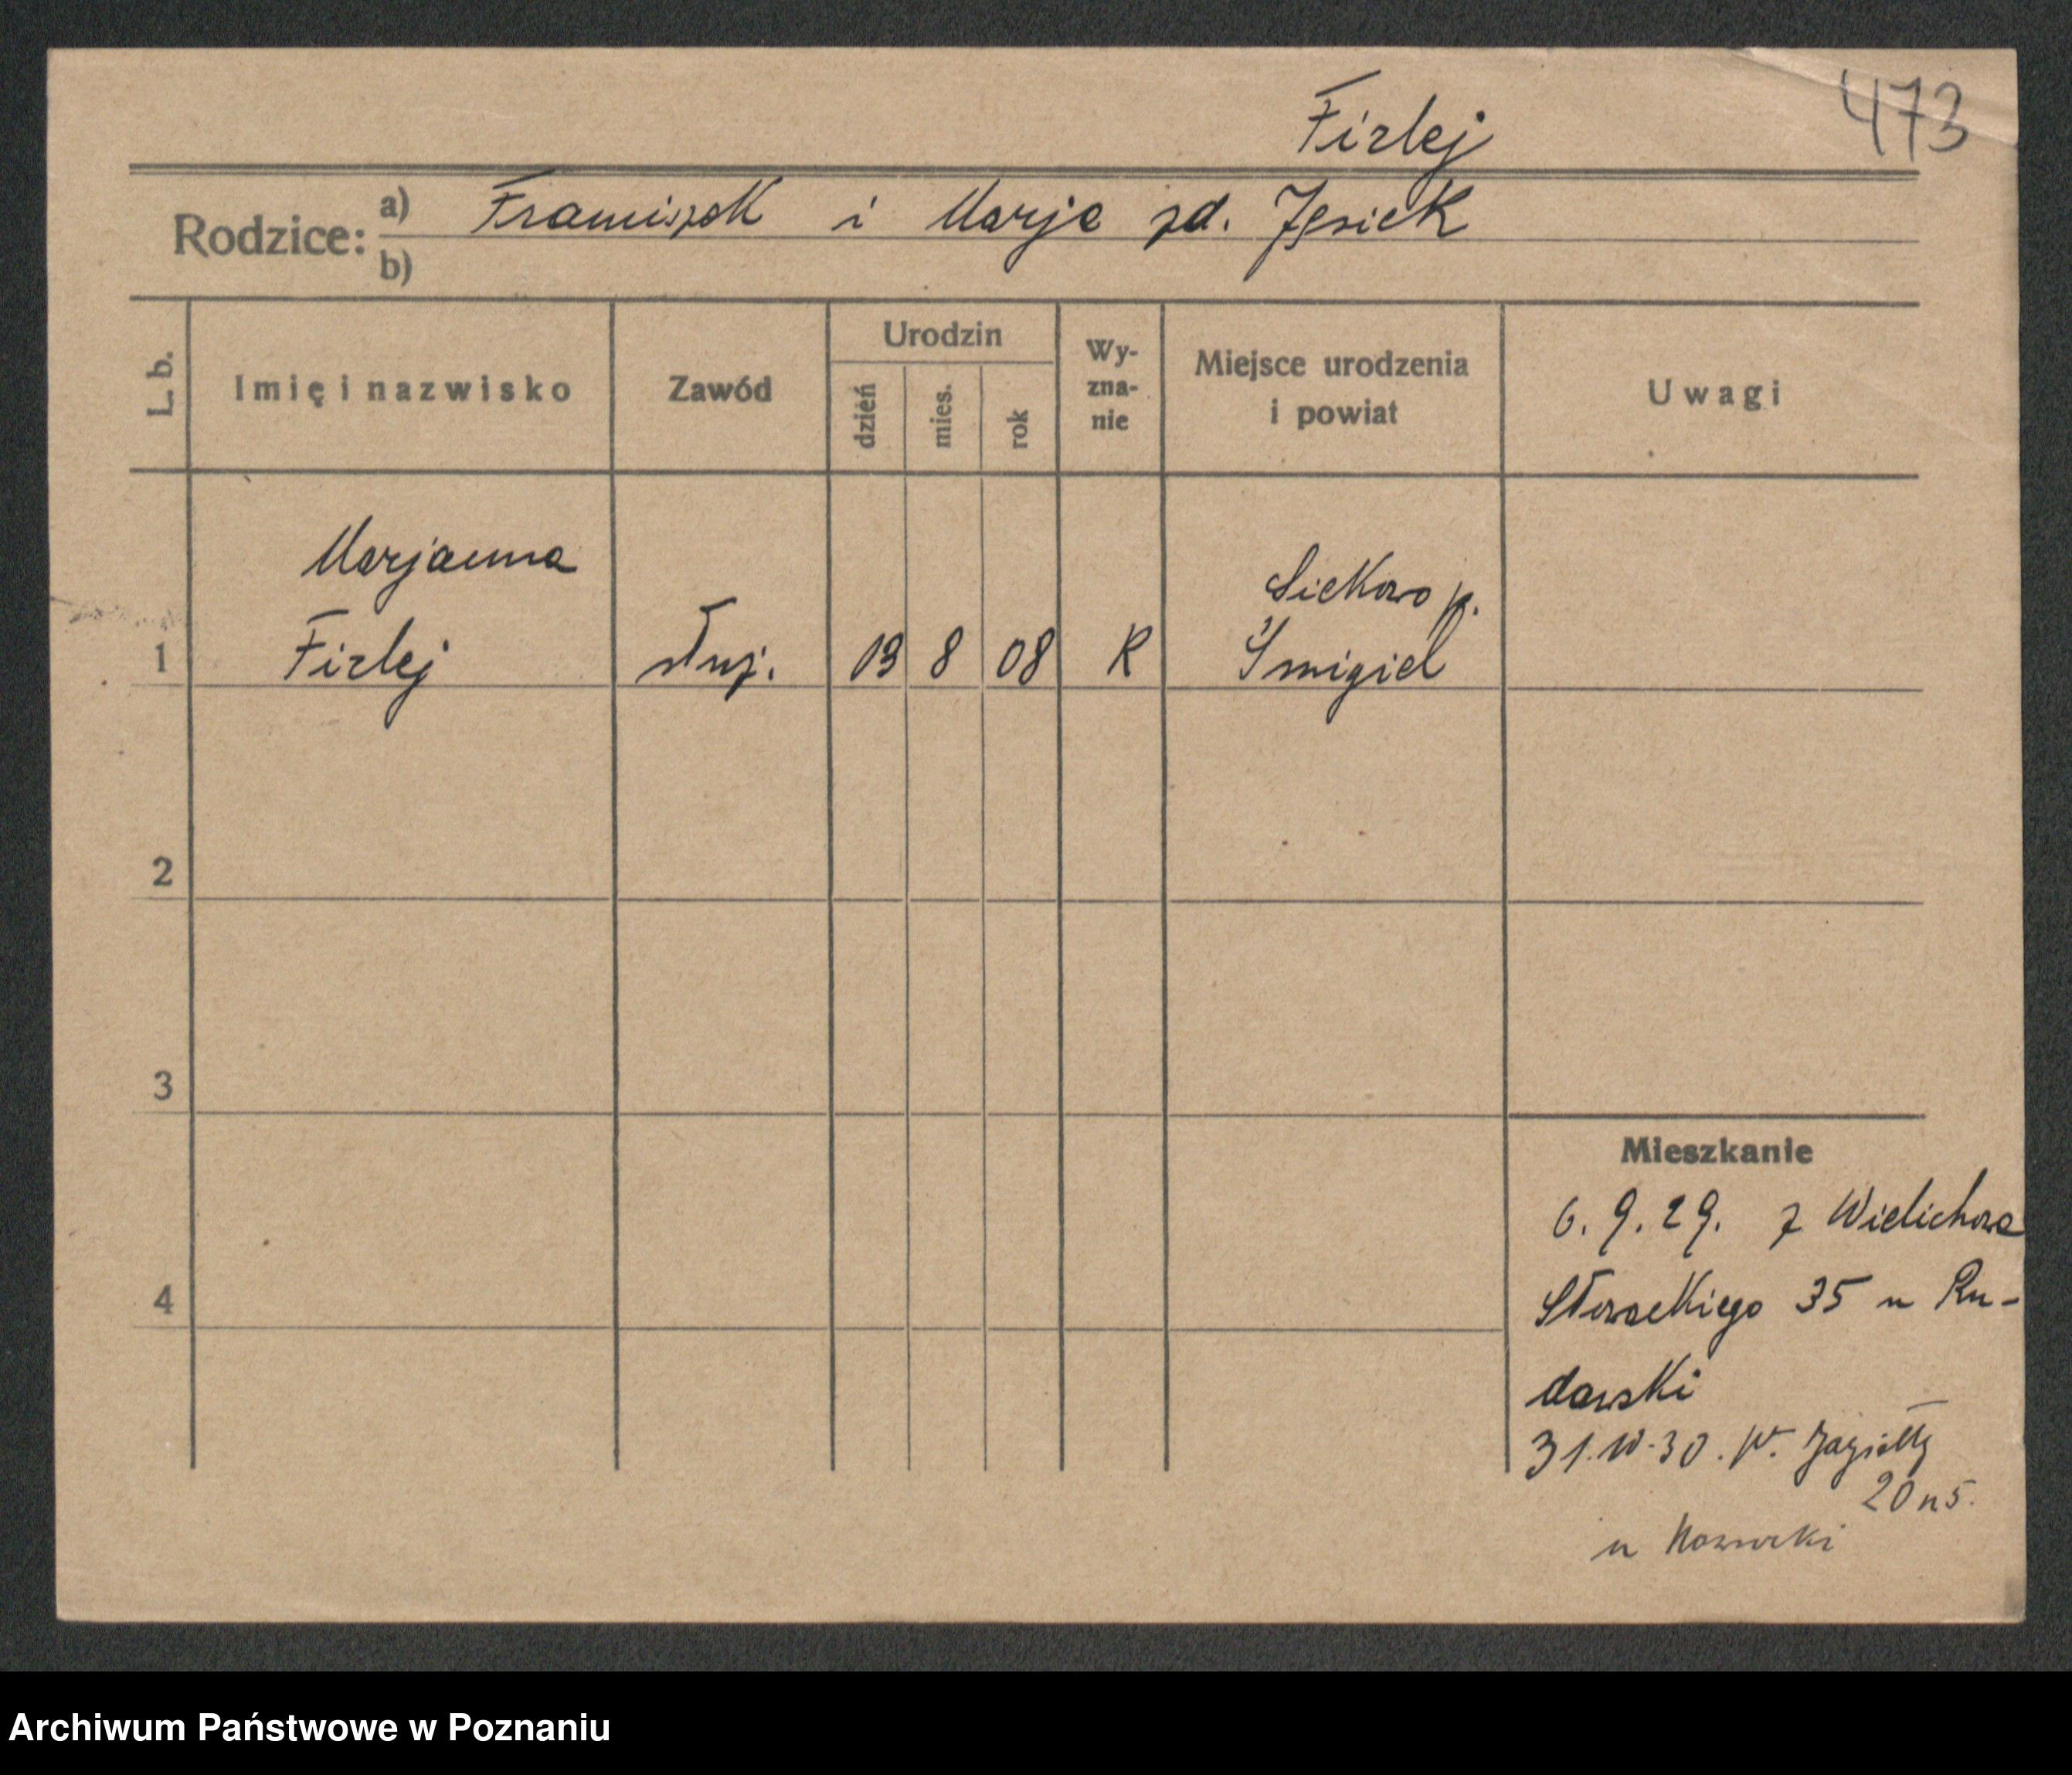 Firlej
473
Rodzice: a) Franciszek i Marja zd. Jęsiek
b)
L. b.
Imię i nazwisko
Zawód
Urodzin
dzień
mies.
rok
Wy-
zna-
nie
Miejsce urodzenia
i powiat
Uwagi
Marjanna
Siekowo p.
1 Firlej służ. 8 08 R Śmigiel
2
3
4
Mieszkanie
6. 9. 29. z Wielichowa
Słowackiego 35 u Ru-
dawski
W. Jagiełły
20
u
Archiwum Państwowe w Poznaniu